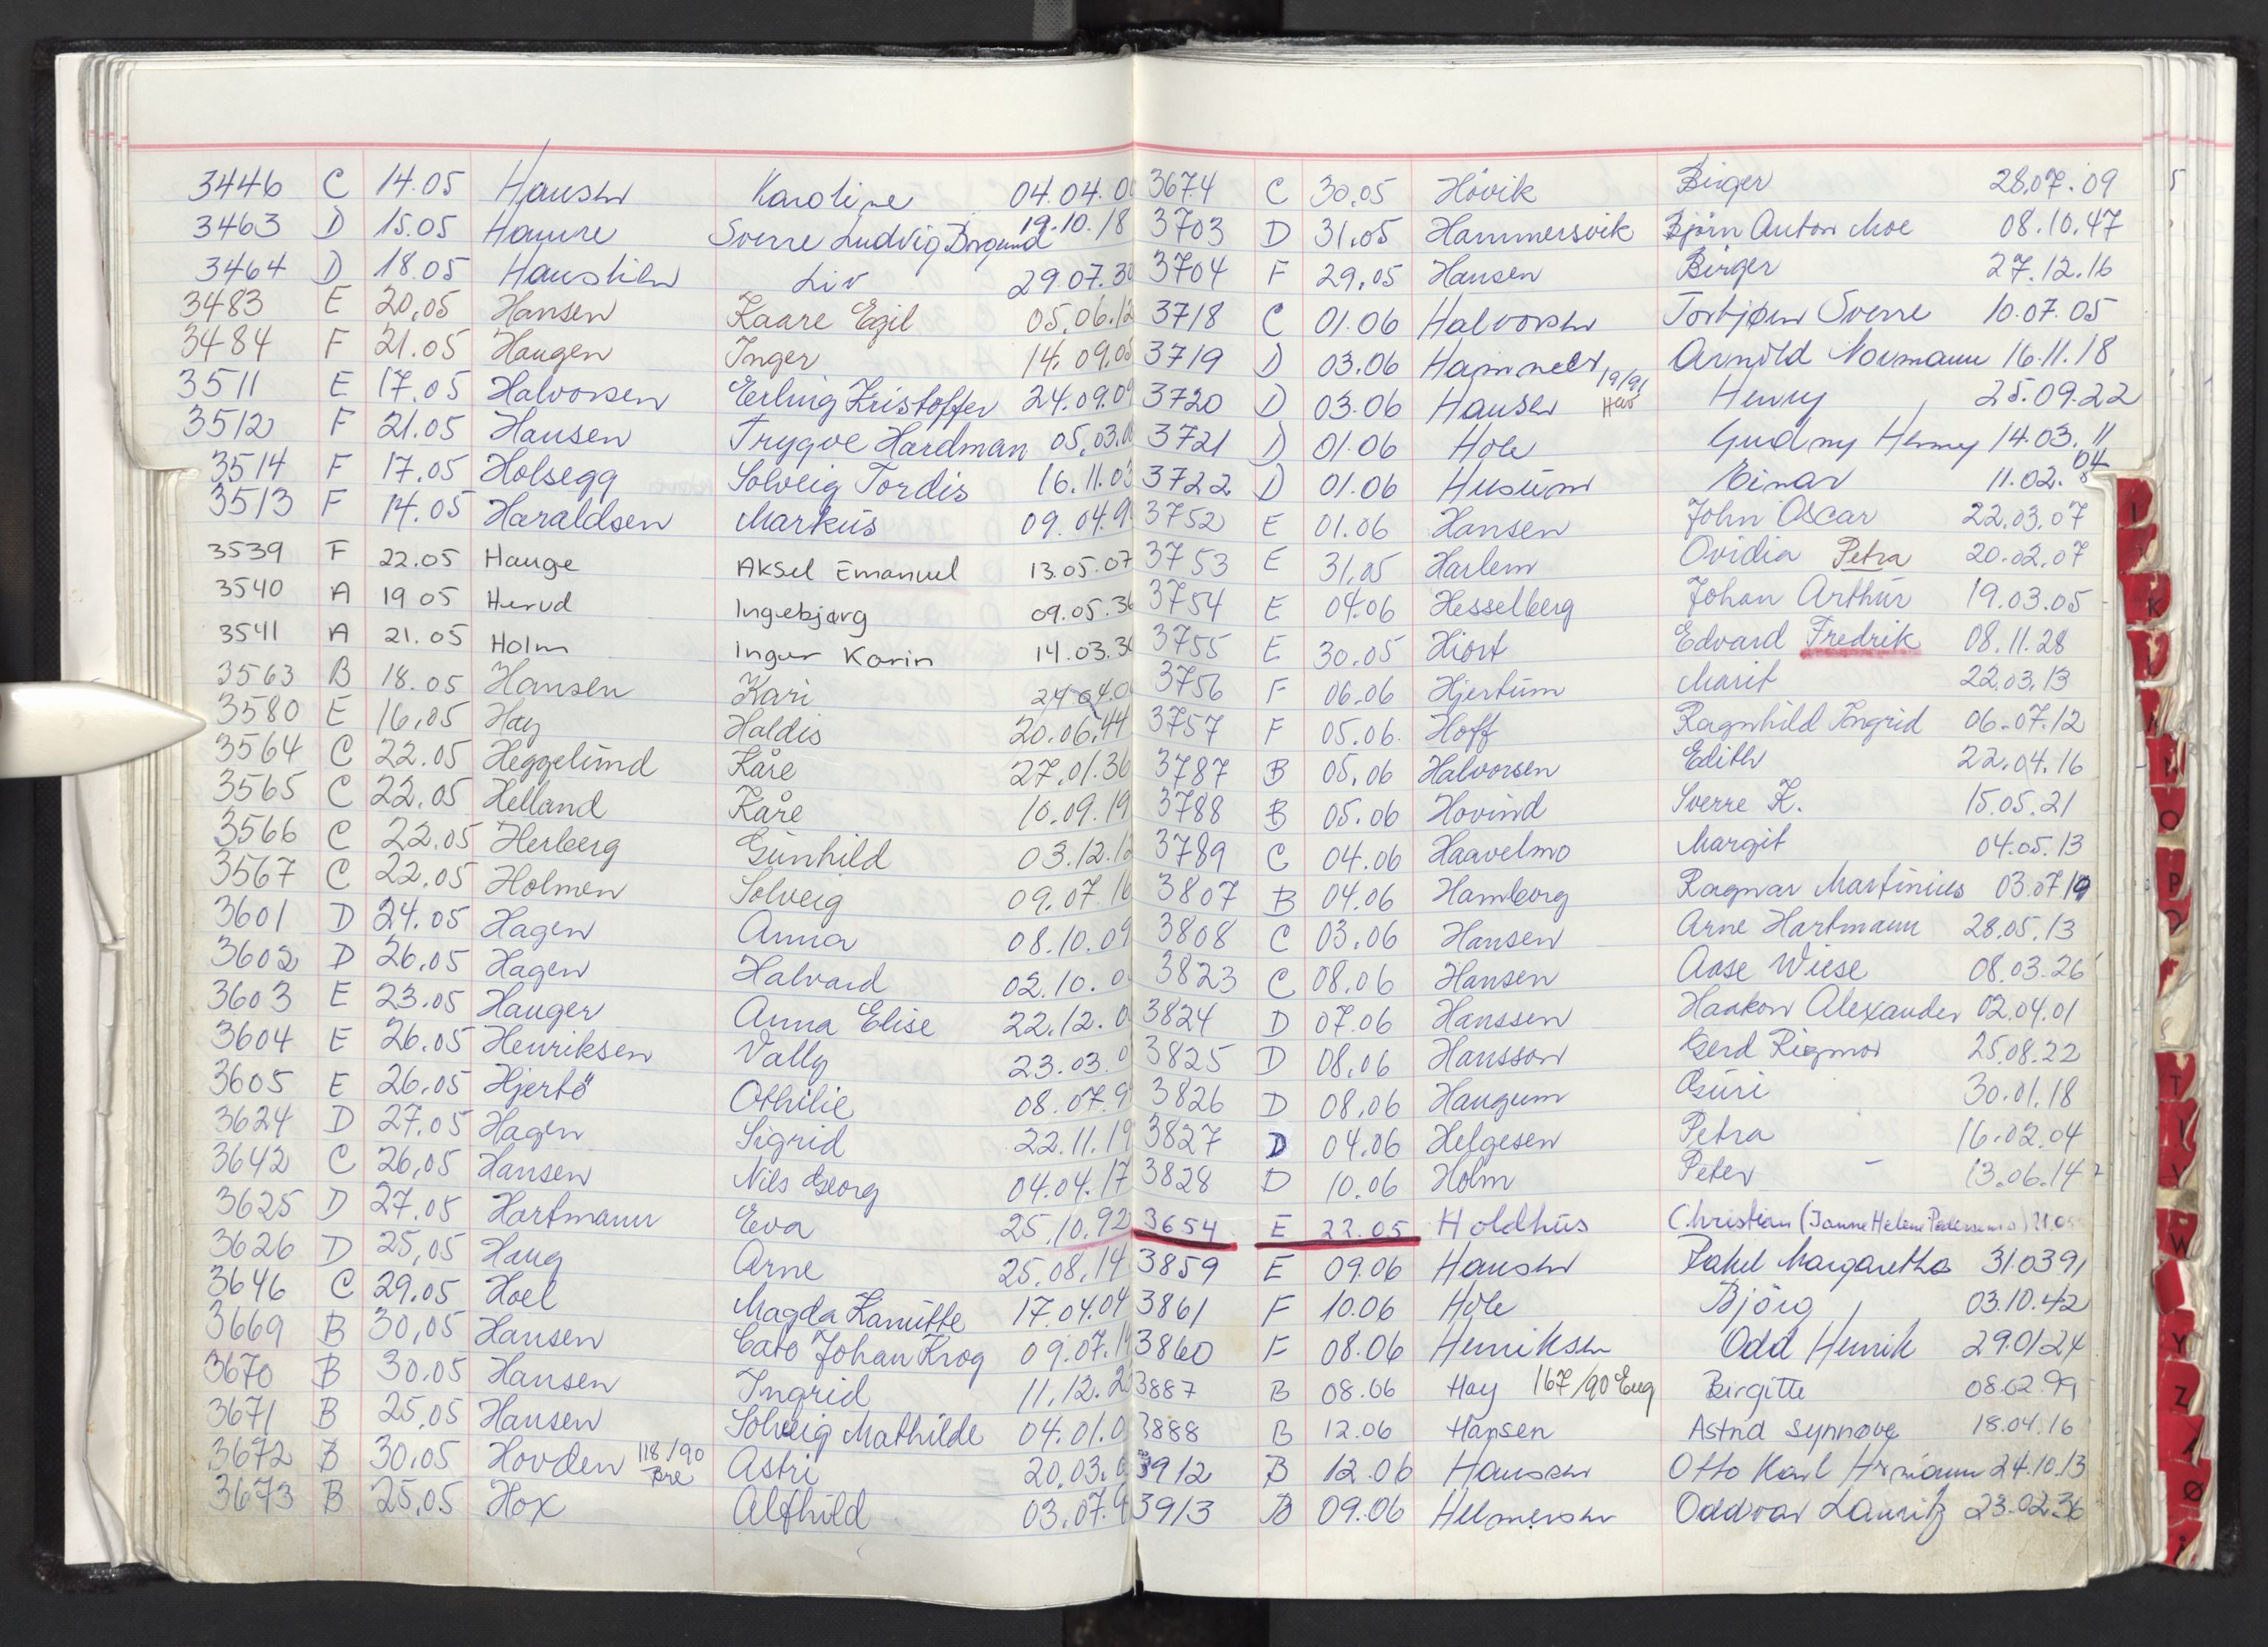 3446 C 14.05 Hansen Karoline 04.04.0
3463 D 15.05 Hamre Sverre Ludvig Borgund 19.10.18
3464 D 18.05 Liv 29.07.30
3483 E 20.05 Hansen Kaare Egil 05.06.12
3484 F 21.05 Haugen Inger 14.09.05
3511 E 17.05 Halvorsen Erling Kristoffer 24.09.09
3512 F 21.05 Hansen Trygve Hardman 05.03.0
3514 F 17.05 Holsegg Solveig Tordis 16.11.03
3513 F 14.05 Haraldsen Markus 09.04.9
3539 F 22.05 Hauge Aksel Emanuel 13.05.07
3540 A 19 05 Herud Ingebjørg 09.05.36
3541 A 21.05 Holm Inger Karin 14.03.3
3563 B 18.05 Hansen Kari 24.04.0
3580 E 16.05 Hay Haldis 20.06.44
3564 C 22.05 Heggelund Kåre 27.01.36
3565 C 22.05 Helland Kåre 10.09.19
3566 C 22.05 Herberg Gunhild 03.12.12
3567 C 22.05 Holmen Solveig 09.07.16
3601 D 24.05 Hagen Anna 08.10.09
3602 D 26.05 Hagen Halvard 02.10.0
3603 E 23.05 Hauger Anna Elise 22.12.0
3604 E 26.05 Henriksen Vally 23.03.0
3605 E 26.05 Hjertö Othilie 08.07.9
3624 D 27.05 Hagen Sigrid 22.11.19
3642 C 26.05 Hansen Nils Georg 04.04.17
3625 D 27.05 Hartmann Eva 25.10.92
3626 D 25.05 Haug Arne 25.08.14
3646 C 29.05 Hoel Magda Kanutte 17.04.04
3669 B 30.05 Hansen Cato Johan Krog 09.07.19
3670 B 30.05 Hansen Ingrid 11.12.2
3671 B 25.05 Hansen Solveig Mathilde 04.01.0
3672 B 30.05 Hovden 118/90 Bre Astri 20.03.0
3673 B 25.05 Hox Alfhild 03.07.9
3674 C 30.05 Hövik Birger 28.07.09
3703 D 31.05 Hammersvik Bjørn Anton Moe 08.10.47
3704 F 29.05 Hansen Birger 27.12.16
3718 C 01.06 Halvorsen Torbjørn Sverre 10.07.05
3719 D 03.06 Hammer Arnold Normann 16.11.18
3720 D 03.06 Hansen 19/91 Henry 25.09.22
3721 D 01.06 Hole Gudny Henny 14.03.11
3722 D 01.06 Husum Einar 11.02.04
3752 E 01.06 Hansen John Oscar 22.03.07
3753 E 31.05 Harlem Ovidia Petra 20.02.07
3754 E 04.06 Hesselberg Johan Arthur 19.03.05
3755 E 30.05 Hiort Edvard Fredrik 08.11.28
3756 F 06.06 Hjertum Marit 22.03.13
3757 F 05.06 Hoff Ragnhild Ingrid 06.07.12
3787 B 05.06 Halvorsen Edith 22.04.16
3788 B 05.06 Hovind Sverre K. 15.05.21
3789 C 04.06 Haavelmo Margit 04.05.13
3807 B 04.06 Hamborg Ragnar Martinius 03.07.19
3808 C 03.06 Hansen Arne Hartmann 28.05.13
3823 C 08.06 Hansen Aase Wiese 08.03.26
3824 D 07.06 Hanssen Haakon Alexander 02.04.01
3825 D 08.06 Hansson Gerd Rigmor 25.08.22
3826 D 08.06 Haugum Guri 30.01.18
3827 D 04.06 Helgesen Petra 16.02.04
3828 D 10.06 Holm Peter 13.06.14
3654 E 22.05 Holdhus Christian (Janne Helene Pedersens) 21.05
3859 E 09.06 Hansen Rakel Margaretha 31.03 91
3861 F 10.06 Hole Björg 03.10.42
3860 F 08.06 Henriksen Odd Henrik 29.01.24
3887 B 08.06 Hay 167/90 Eug Birgitte 08.02.99
3888 B 12.06 Hansen Astrid Synnøve 18.04.16
3912 B 12.06 Hansen Otto Karl Hermann 24.10.13
3913 B 09.06 Helmersen Oddvar Lauritz 23.02.36